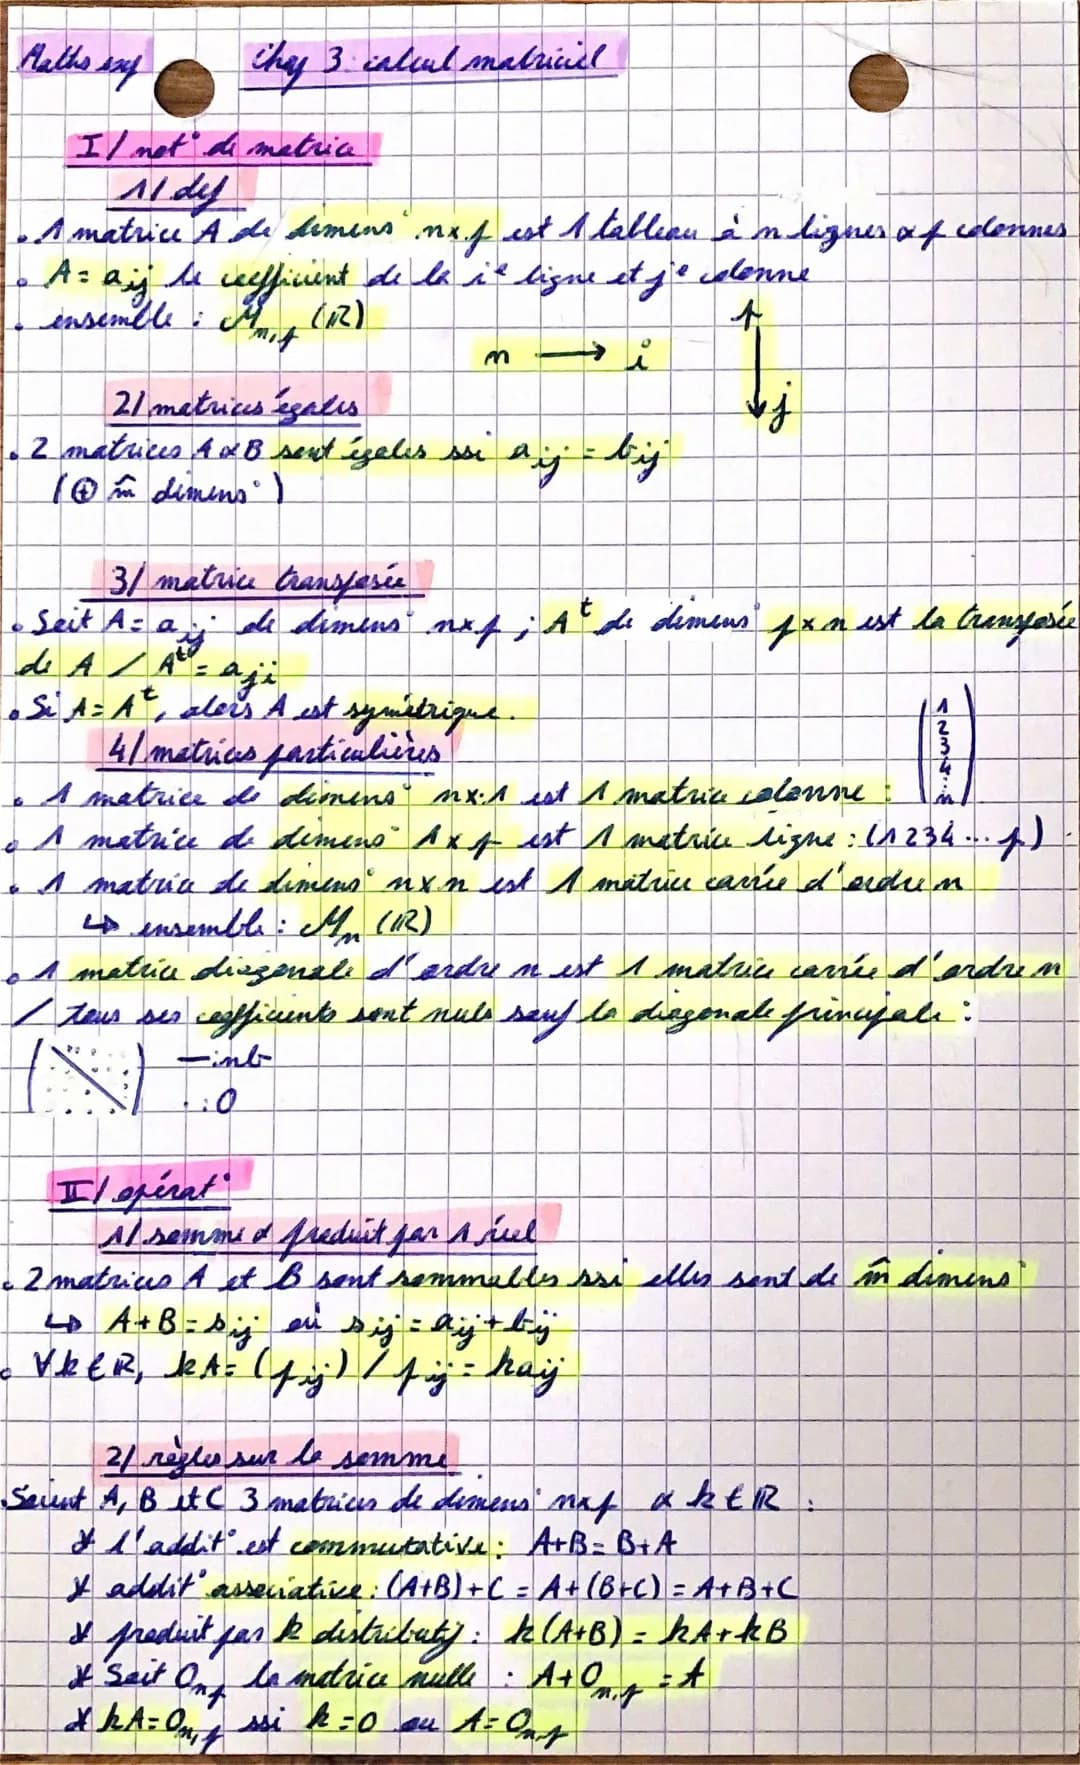 Maths exp Chap 3 : calcul matriciel
I/ not° de matrice
1/ def
. 1 matrice A de dimens° nxp est 1 tableau à n lignes & p colonnes
. A = aij le coefficient de la ie ligne et je colonne
. ensemble : Mn,p (ℝ)
n → i
p ↓ j
2/ matrices égales
. 2 matrices A & B sont égales ssi aij = bij
(⊕ m̂ dimens°)
3/ matrice transposée
. Soit A = aij de dimens° nxp ; Aᵗ de dimens° pxn est la transposée
de A / Aᵗ = aji
. Si A = Aᵗ, alors A est symétrique.
4/ matrices particulières
. 1 matrice de dimens° nx1 est 1 matrice colonne : (1 2 3 4 ⋮ n)
. 1 matrice de dimens° 1xp est 1 matrice ligne : (1 2 3 4 ... p)
. 1 matrice de dimens° nxn est 1 matrice carrée d'ordre n
↳ ensemble : Mn (ℝ)
. 1 matrice diagonale d'ordre n est 1 matrice carrée d'ordre n
/ tous ses coefficients sont nuls sauf la diagonale principale :
— : nb
· : 0
II/ opérat°
1/ somme & produit par 1 réel
. 2 matrices A et B sont sommables ssi elles sont de m̂ dimens°
↳ A+B = sij où sij = aij + bij
. ∀k ∈ ℝ, kA = (pij) / pij = kaij
2/ règles sur la somme
. Soient A, B et C 3 matrices de dimens° nxp & k ∈ ℝ :
* l'addit° est commutative : A+B = B+A
* addit° associative : (A+B)+C = A+(B+C) = A+B+C
* produit par k distributif : k(A+B) = kA+kB
* Soit On,p la matrice nulle : A+On,p = A
* kA = On,p ssi k = 0 ou A = On,p